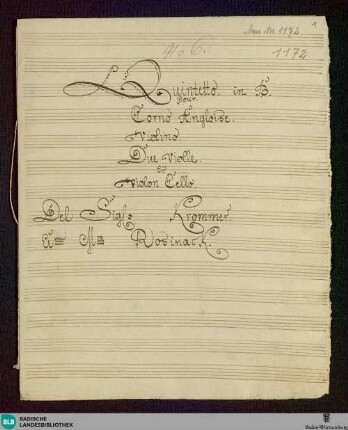 Mus. Ms. 1172
1
No 6.
1172
Quintetto in B.
pour
Corno Angloise.
Violino
Due Violle.
et
Violon Cello.
Del Sigl: Krommer.
à Mr Rosinack.
BLB BADISCHE LANDESBIBLIOTHEK
Baden-Württemberg